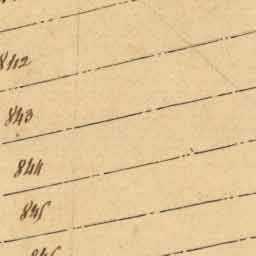 842
843
844
845
846